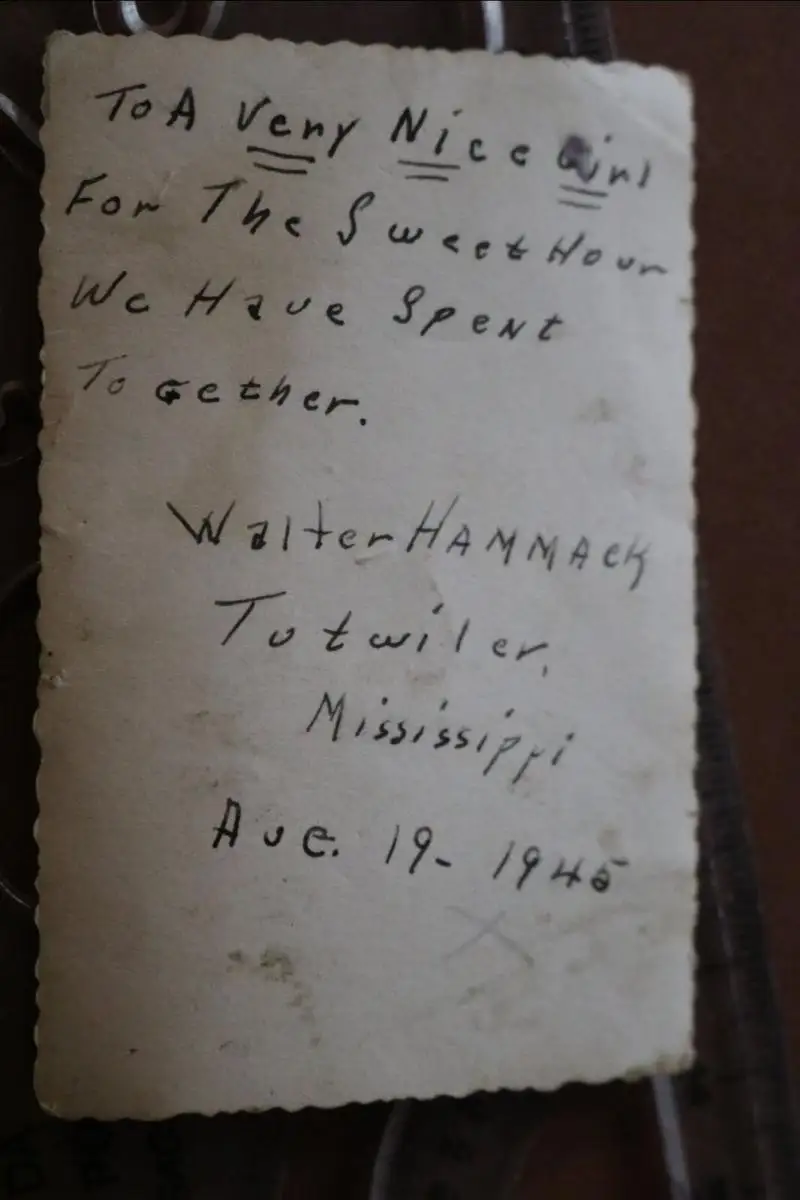 To A Very Nice Girl
For The Sweet Hour
We Have Spent
ToGether.
Walter HAMMACK
Tutwiler,
Mississippi
Aug. 19- 1945